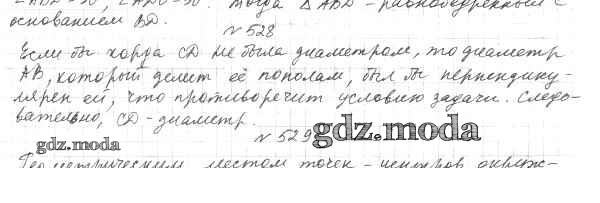 основанием BD.
N 528
Если бы хорда CD не была диаметром, то диаметр
AB, который делит её пополам, был бы перпендику-
лярен ей, что противоречит условию задачи. Следо-
вательно, CD - диаметр.
N 529
gdz.moda
gdz.moda
Геометрическим местом точек - центров окруж-